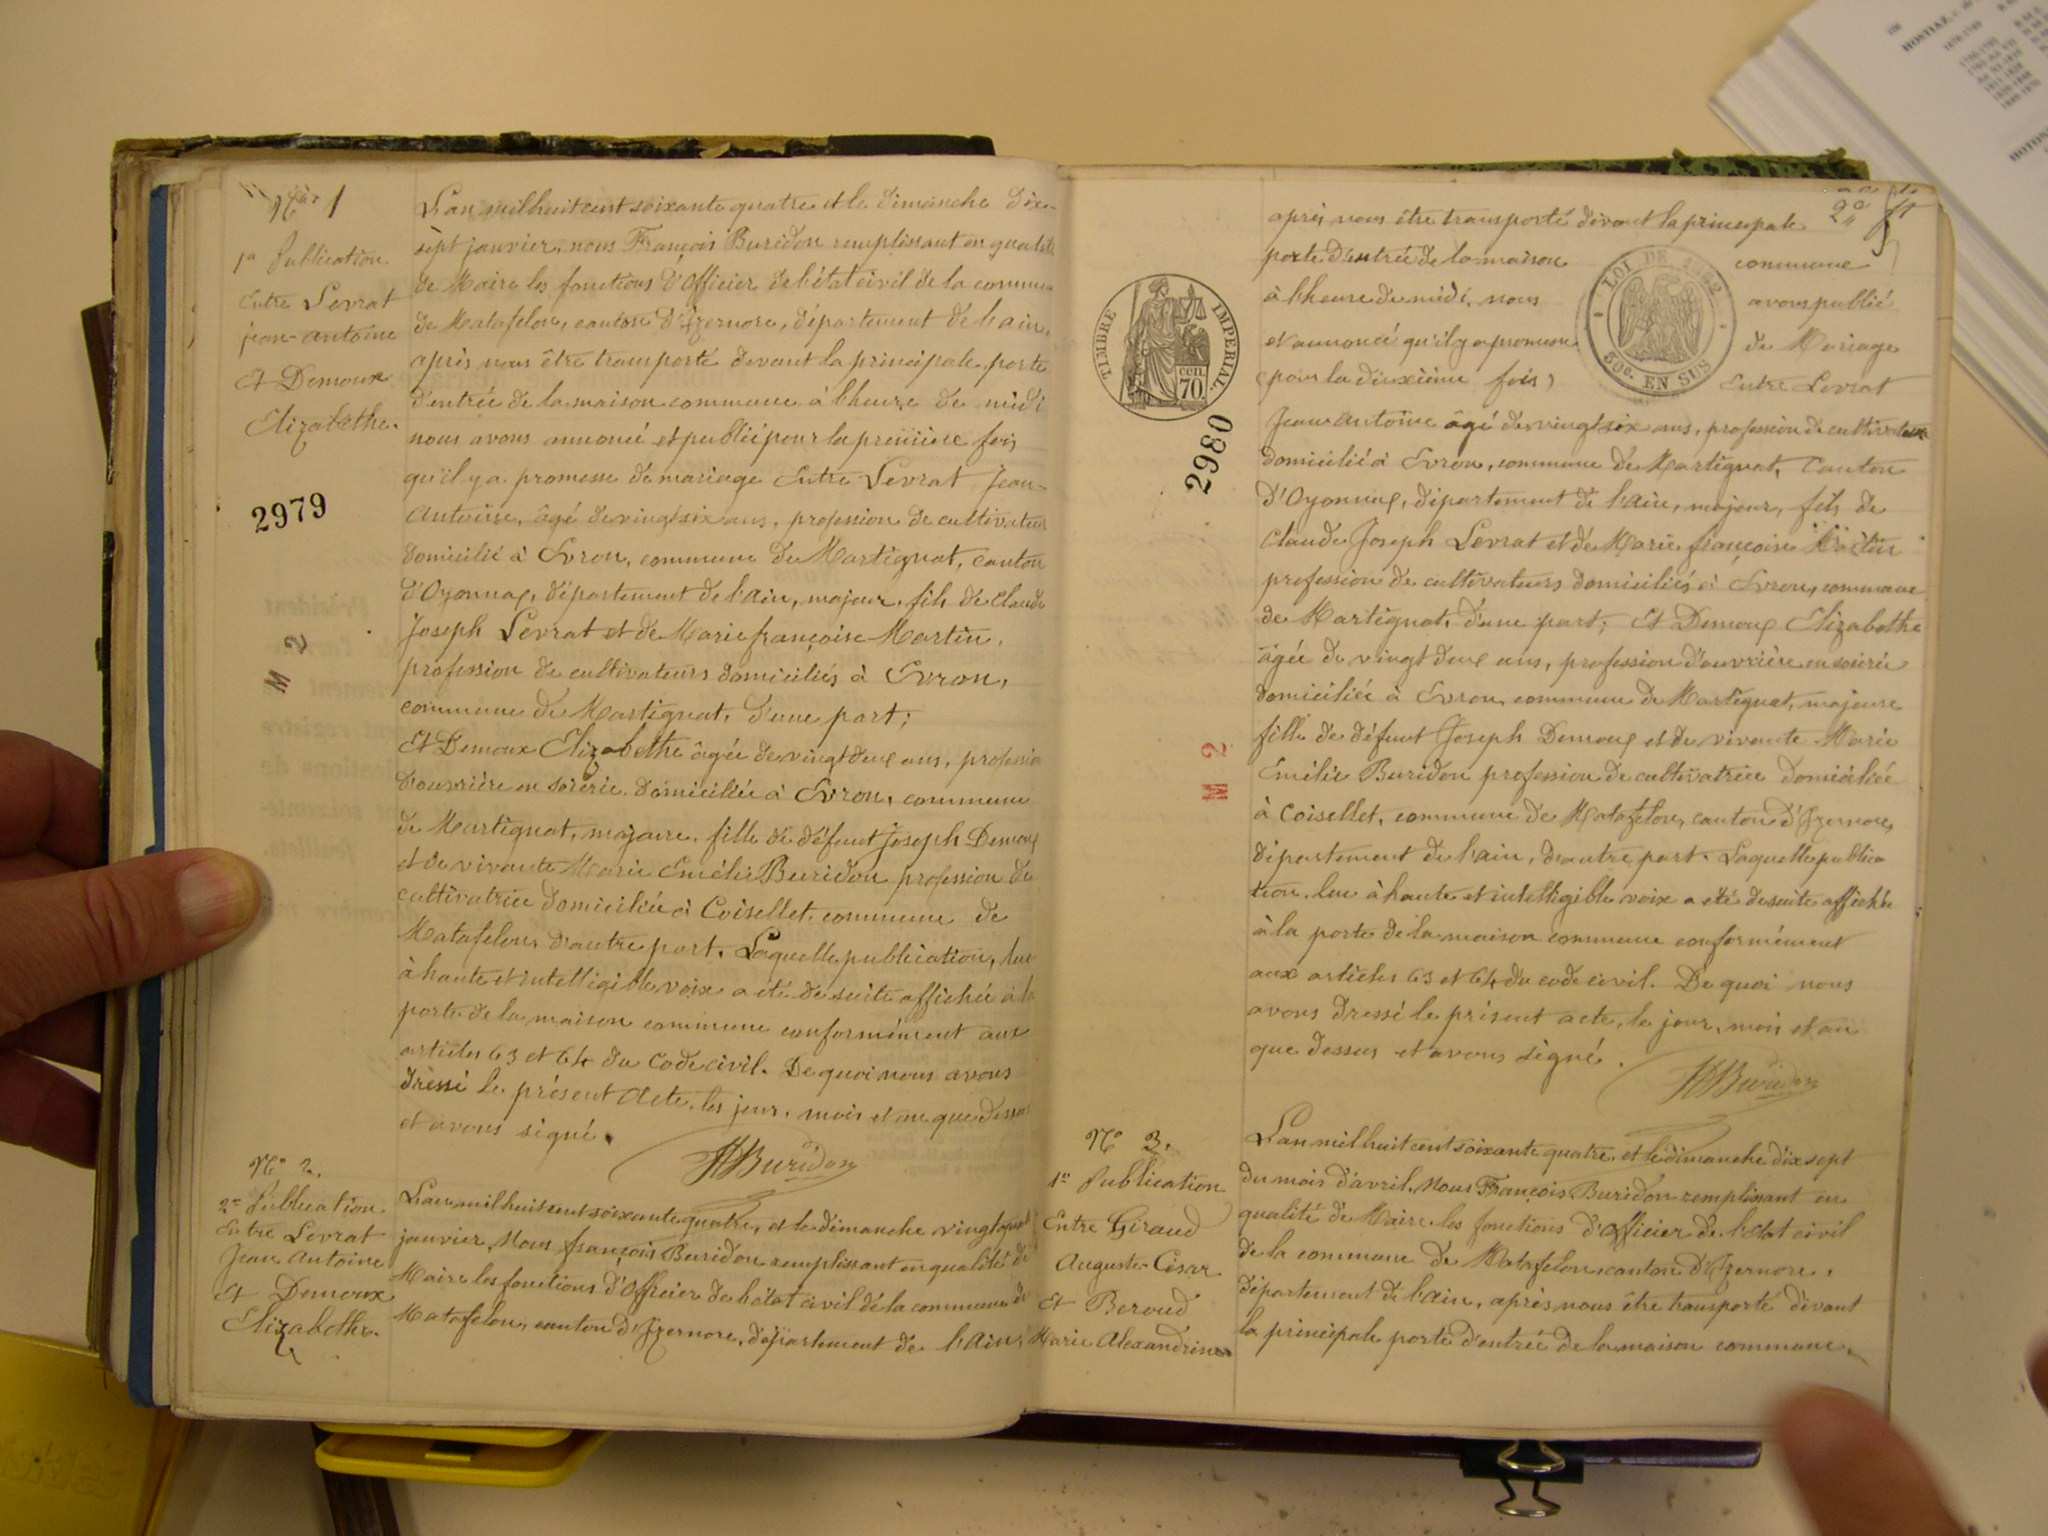 Nro 1
1e Publication
Entre Levrat
jean-antoine
Et Demoux
Elizabethe.
2979
M 2
L'an mil huit cent soixante quatre et le dimanche dix-
sept janvier, nous François Buridon remplissant en qualité
de Maire les fonctions d'Officier de l'état civil de la commune
de Matafelon, canton d'Izernore, département de l'ain,
après nous être transporté devant la principale porte
d'entrée de la maison commune à l'heure de midi
nous avons annoncé et publié pour la première fois
qu'il y a promesse de mariage Entre Levrat Jean-
Antoine, âgé de vingt six ans, profession de cultivateur
domicilié à Evron, commune de Martignat, canton
d'Oyonnax, département de l'ain, majeur, fils de Claude
Joseph Levrat et de Marie françoise Martin,
profession de cultivateurs domiciliés à Evron,
commune de Martignat, d'une part;
Et Demoux Elizabethe âgée de vingt deux ans, profession
d'ouvrière en soierie domiciliée à Evron, commune
de Martignat, majeure, fille de défunt Joseph Demoux
et de vivante Marie Emélie Buridon profession de
cultivatrice domiciliée à Coisellet, commune de
Matafelon, d'autre part. Laquelle publication, lue
à haute et intelligible voix a été de suite affichée à la
porte de la maison commune conformément aux
articles 63 et 64 du Code civil. De quoi nous avons
dressé le présent acte, les jour, mois et an que dessus
et avons signé.
Buridon
No 2.
2e Publication
Entre Levrat
Jean Antoine
Et Demoux
Elizabethe.
L'an mil huit cent soixante quatre, et le dimanche vingt quatre
janvier, Nous françois Buridon remplissant en qualité de
Maire les fonctions d'Officier de l'état civil de la commune de
Matafelon, canton d'Izernore, département de l'ain,
après nous être transporté devant la principale
porte d'entrée de la maison commune
à l'heure de midi, nous avons publié
et annoncé qu'il y a promesse de Mariage
(pour la deuxième fois) Entre Levrat
Jean Antoine âgé de vingt six ans, profession de cultivateur
domicilié à Evron, commune de Martignat, Canton
d'Oyonnax, département de l'ain, majeur, fils de
Claude Joseph Levrat et de Marie françoise Martin
profession de cultivateurs domiciliés à Evron, commune
de Martignat, d'une part; Et Demoux Elizabethe
âgée de vingt deux ans, profession d'ouvrière en soierie
domiciliée à Evron, commune de Martignat, majeure
fille de défunt Joseph Demoux et de vivante Marie
Emélie Buridon profession de cultivatrice domiciliée
à Coisellet, commune de Matafelon, canton d'Izernore,
département de l'ain, d'autre part. Laquelle publica
tion, lue à haute et intelligible voix a été de suite affichée
à la porte de la maison commune conformément
aux articles 63 et 64 du code civil. De quoi nous
avons dressé le présent acte, le jour, mois et an
que dessus et avons signé.
Buridon
2e
TIMBRE IMPERIAL
70 cen
LOI DE 1862
50c. EN SUS
2980
M 2
No 3.
1e Publication
Entre Giraud
Auguste César
Et Beroud
Marie Alexandrine
L'an mil huit cent soixante quatre, et le dimanche dix sept
du mois d'avril, Nous François Buridon remplissant en
qualité de Maire les fonctions d'Officier de l'état civil
de la commune de Matafelon, canton d'Izernore,
département de l'ain, après nous être transporté devant
la principale porte d'entrée de la maison commune,
HOSTIAZ